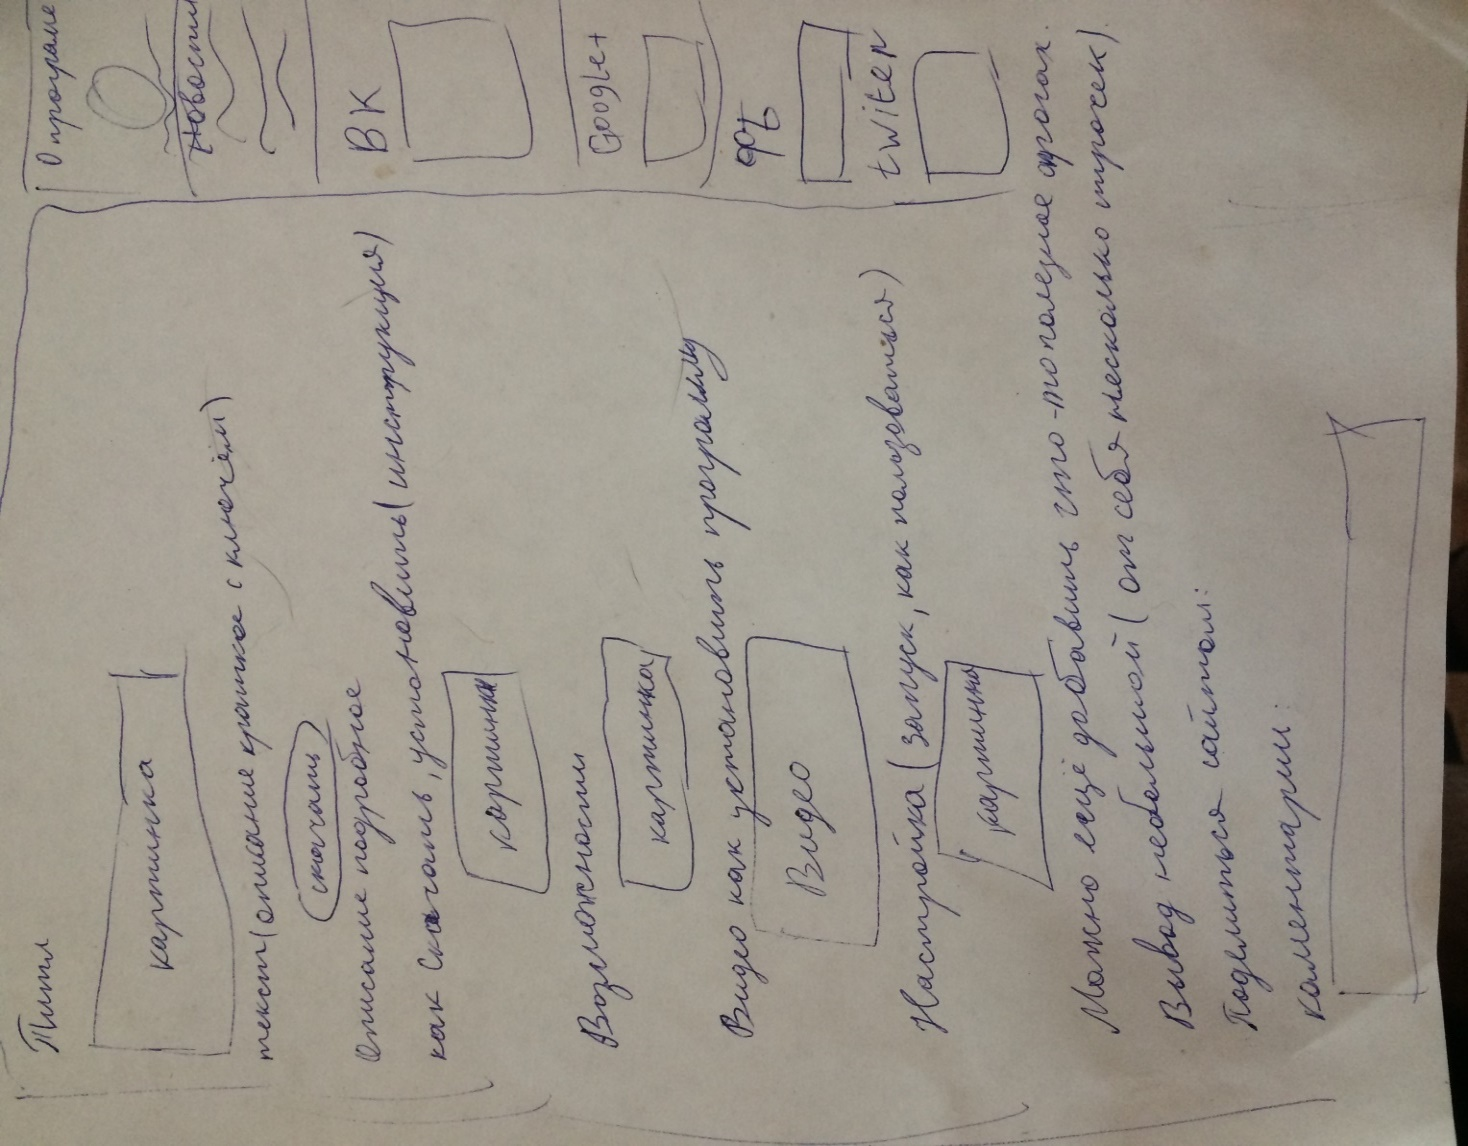 Титл
картинка
текст (описание краткое с ключём)
скачать
Описание подробное
как скачать, установить (инструкция)
картинка
Возможности
картинка
Видео как установить программу
Видео
Настройка (запуск, как пользоваться)
картинка
Можно ещё добавить что-то полезное
Вывод небольшой (от себя несколько строчек)
Поделиться сайтом:
комментарии:
О програме
Новости
ВК
Google+
фб
twiter